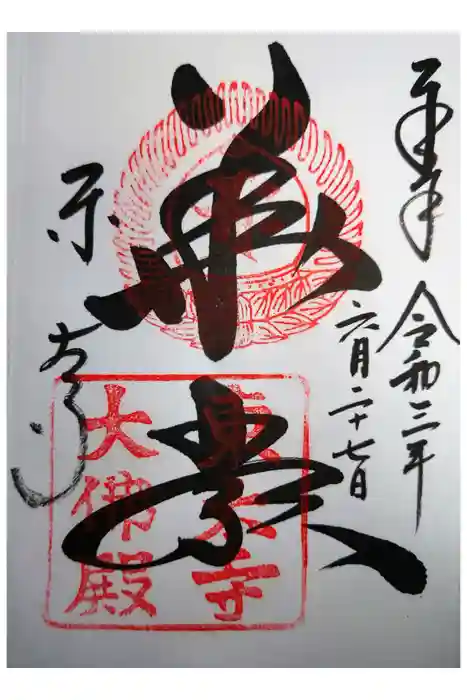 奉拝
令和三年
六月二十七日
華厳
東大寺
東大寺
大佛殿